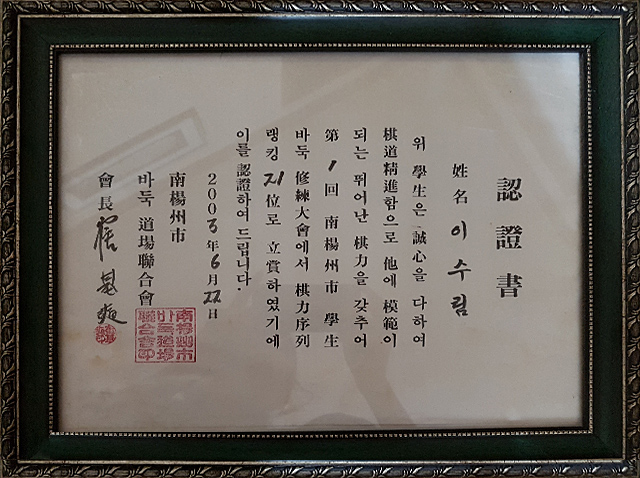 認證書
姓名 이수림
위 學生은 誠心을 다하여
棋道精進함으로 他에 模範이
되는 뛰어난 棋力을 갖추어
第 1 回 南楊州市 學生
바둑 修練大會에서 棋力序列
랭킹 21位로 立賞하였기에
이를 認證하여 드립니다.
2003年 6月 22日
南楊州市
바둑 道場聯合會
會長
南楊州市
바둑道場
聯合會印